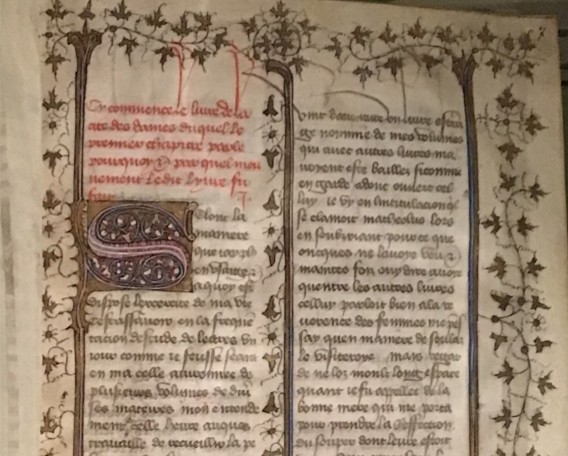 Cy commence le livre de la
cite des dames duquel le
premier chapitre parle
pourquoy & par quel mou
uement ledit livre fu
fait
Selonc la
maniere
que iay en
usaige
a quoy est
dispose lexercite de ma vie
cestassavoir en la freque
tacion destude de lettres vn
iour comme ie feusse seant
en ma celle auironnee de
plusieurs volumes de diu
ses matieres mon entende
ment celle heure auques
travaille de recueillir la pe
vint dun livre estra
ge non mie de mes volumes
qui avec autres livres ma
voyent este bailles si comme
en garde adonc ouuert cel
luy ie vy en lintitulacion ql
se clamoit matheolus lors
en soubriant pour ce que
oncques ne lauoye veu &
maintes fois ouy dire auoye
quentre les autres livres
celluy parloit bien a la re
uerence des femmes me pesay
say quen maniere de soulas
le visiteroye mais regar
de ne loz moult longt espace
quant ie fu appellee de la
bonne mere qui me porta
pour prendre la reffection
du souper dont leure estoit